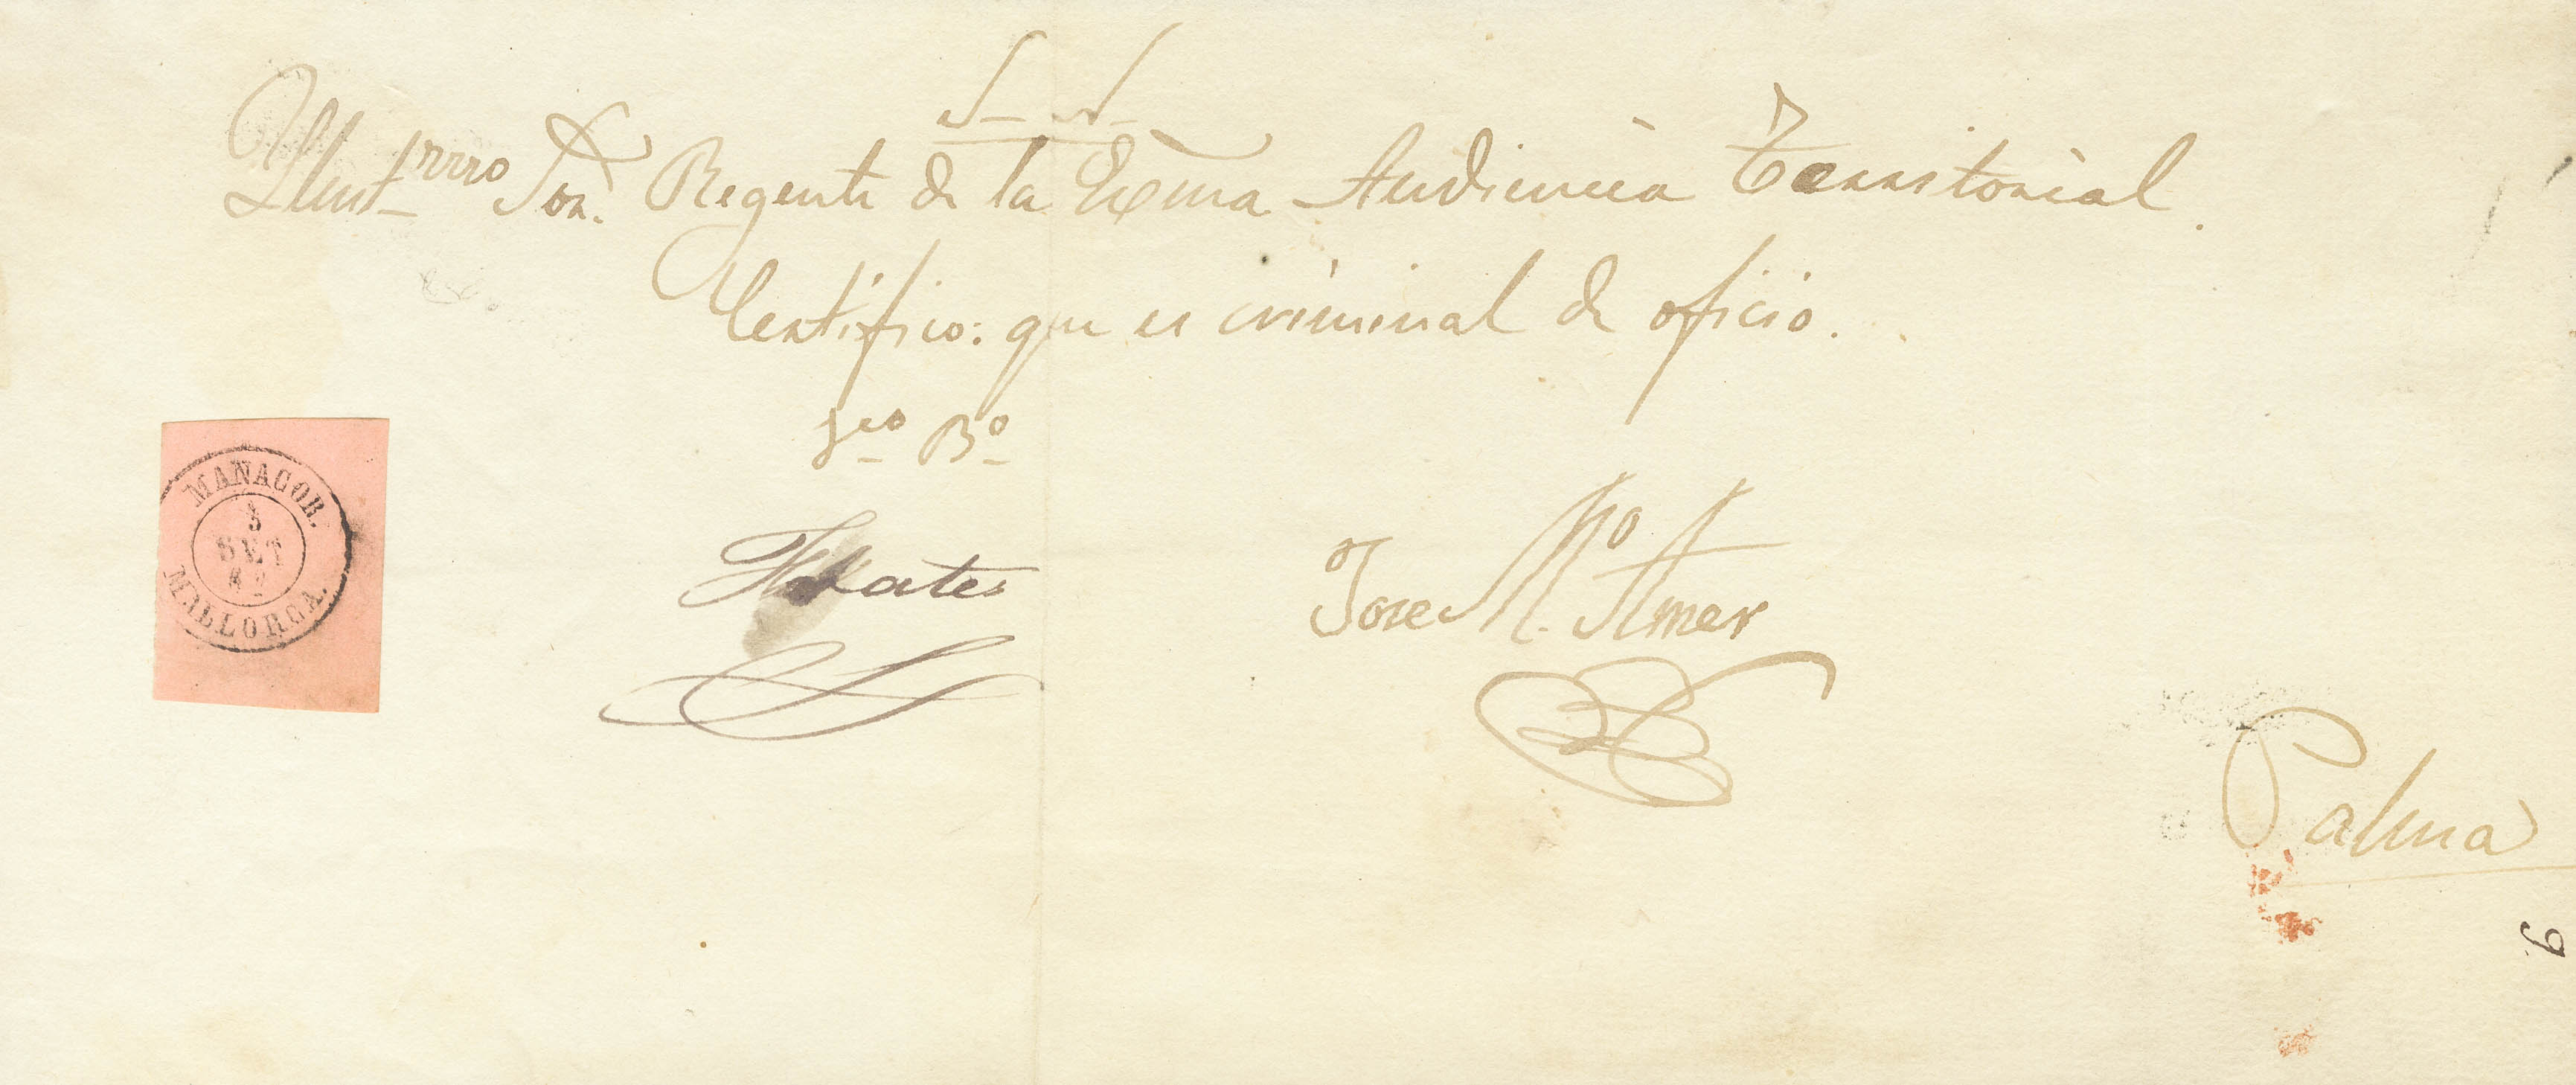 S. N.
Ilust.rmo Sor. Regente de la Exma Audiencia Territorial.
Certifico: que es criminal de oficio.
Vto Bo
MANACOR.
3
SET
MALLORCA.
Jose Mª. Amer
Palma
9